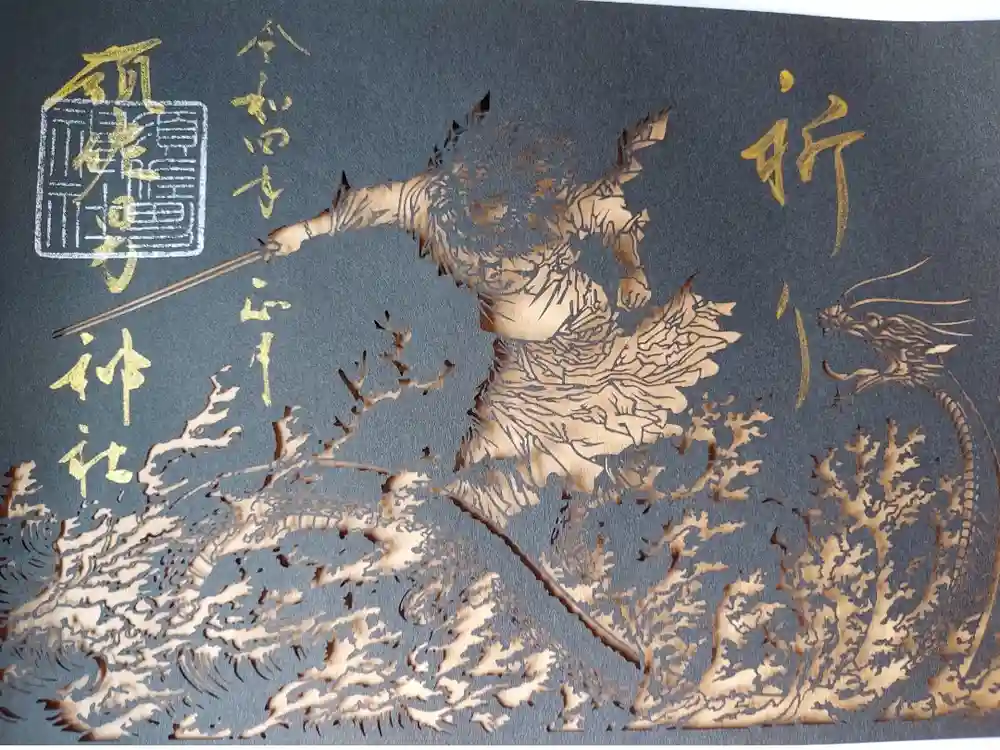 祈り
令和四年 正月
須佐男神社